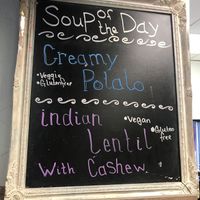 Soup of the Day
Creamy
•Veggie
•Glutenfree
Potato
indian
•Vegan
Lentil
•Gluten
free
With Cashew